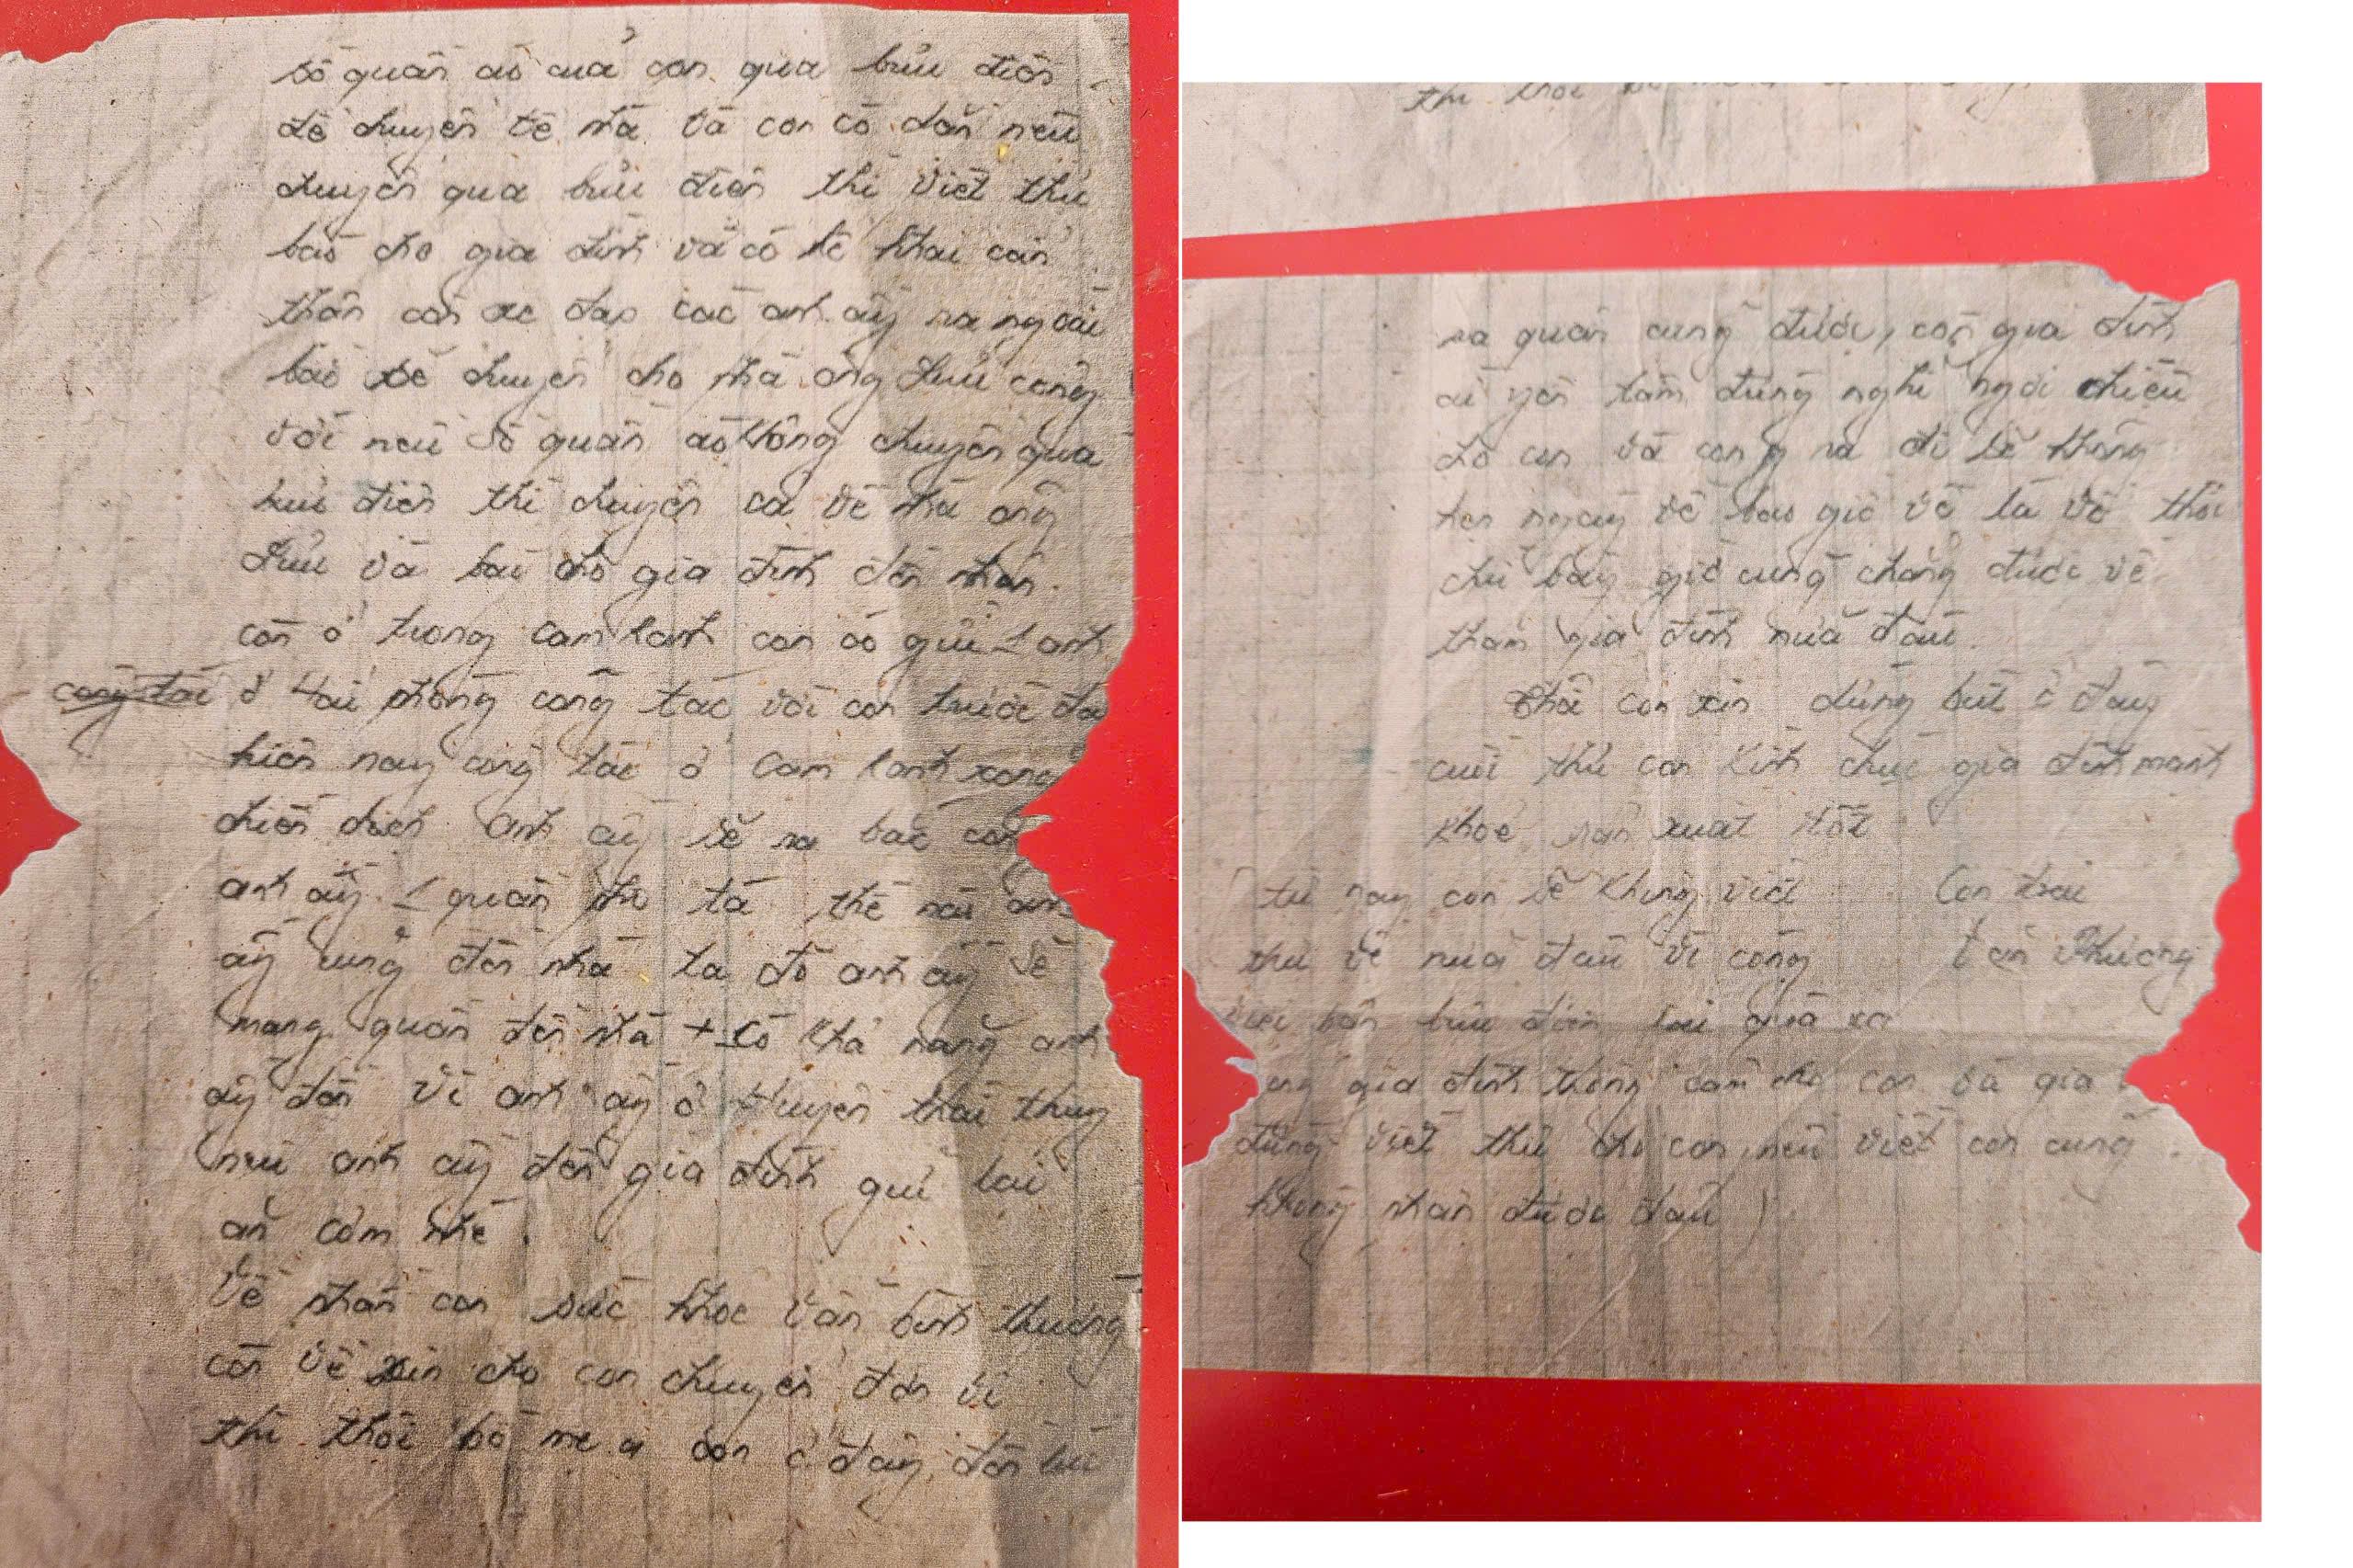 số quần áo của con qua bưu điện
để chuyển về nhà và con có dặn nếu
chuyển qua bưu điện thì viết thư
báo cho gia đình và có kê khai cẩn
thận còn xe đạp các anh ấy ra ngoài
bảo sẽ chuyển cho nhà ông Lưu cùng
với nếu số quần áo không chuyển qua
bưu điện thì chuyển cả về nhà ông
Lưu và báo cho gia đình đến nhận.
còn ở trong cam Ranh con có gửi 1 anh
công tác ở Hải phòng công tác với con trước đây
hiện nay công tác ở Cam Ranh xong
chiến dịch anh ấy sẽ ra bắc con
anh ấy 1 quần thế nào anh
ấy cũng đến nhà ta đó anh ấy sẽ
mang quần đến nhà + có khả năng anh
ấy đến vì anh ấy ở Huyện thái thuỵ
nếu anh ấy đến gia đình giữ lại
ăn cơm nhé.
Về phần con sức khoẻ vẫn bình thường
còn về xin cho con chuyển đơn vị
thì thôi bố mẹ ạ con ở đây đến lúc
ra quân cũng được, còn gia đình
cứ yên tâm đừng nghĩ ngợi nhiều
cho con và con ra đi sẽ không
hẹn ngày về bao giờ về là về thôi
chứ bây giờ cũng chẳng được về
thăm gia đình nữa đâu.
Thôi con xin dừng bút ở đây
cuối thư con kính chúc gia đình mạnh
khoẻ sản xuất tốt
từ nay con sẽ không viết Con trai
thư về nữa đâu vì công Văn Phương
việc bận bưu điện lại quá xa
gia đình thông cảm cho con và gia
đừng viết thư cho con nếu viết con cũng
không nhận được đâu )